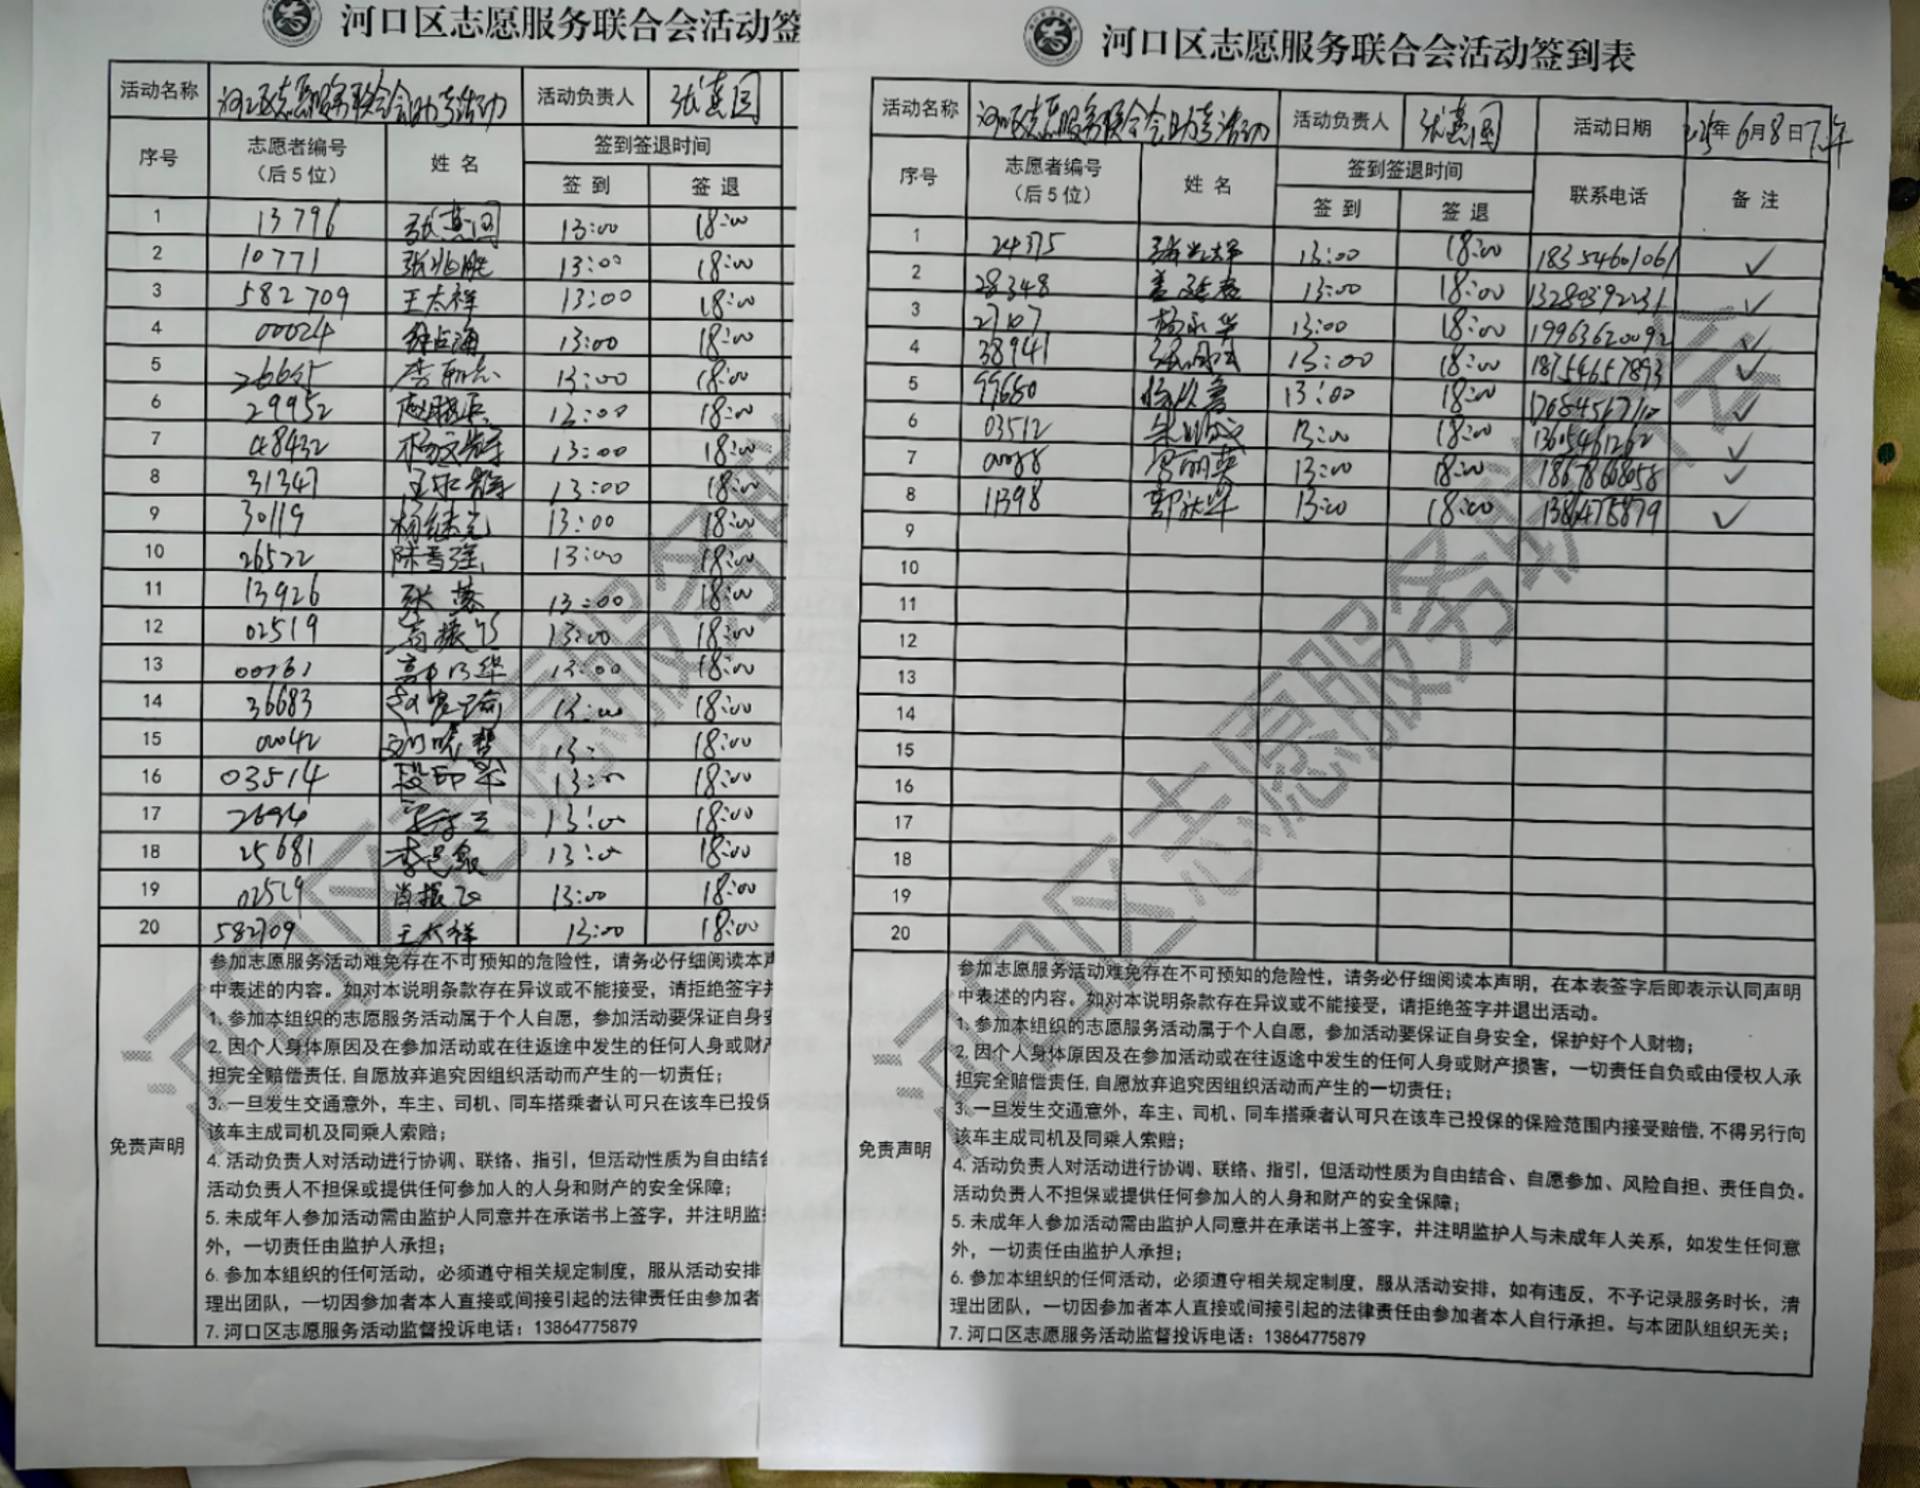 河口区志愿服务联合会活动签
活动名称 河口区志愿服务联合会助考活动 活动负责人
序号 志愿者编号（后5位） 姓名 签到签退时间
签到 签退
1 13796 13:00 18:00
2 10771 张兆胜 13:00 18:00
3 582709 王太祥 13:00 18:00
4 00024 13:00 18:00
5 13:00 18:00
6 29952 13:00 18:00
7 48432 13:00 18:00
8 31347 13:00 18:00
9 30119 13:00 18:00
10 26522 13:00 18:00
11 13926 13:00 18:00
12 02519 13:00 18:00
13 13:00 18:00
14 36683 13:00 18:00
15 00042 13: 18:00
16 03514 13:00 18:00
17 13:00 18:00
18 25681 13:00 18:00
19 02519 肖振 13:00 18:00
20 582709 王太祥 13:00 18:00
免责声明
参加志愿服务活动难免存在不可预知的危险性，请务必仔细阅读本声
中表述的内容。如对本说明条款存在异议或不能接受，请拒绝签字并
1. 参加本组织的志愿服务活动属于个人自愿，参加活动要保证自身安
2. 因个人身体原因及在参加活动或在往返途中发生的任何人身或财产
担完全赔偿责任,自愿放弃追究因组织活动而产生的一切责任；
3. 一旦发生交通意外，车主、司机、同车搭乘者认可只在该车已投保
该车主成司机及同乘人索赔；
4. 活动负责人对活动进行协调、联络、指引，但活动性质为自由结合
活动负责人不担保或提供任何参加人的人身和财产的安全保障；
5. 未成年人参加活动需由监护人同意并在承诺书上签字，并注明监
外，一切责任由监护人承担；
6. 参加本组织的任何活动，必须遵守相关规定制度，服从活动安排
理出团队，一切因参加者本人直接或间接引起的法律责任由参加者
7. 河口区志愿服务活动监督投诉电话：13864775879
河口区志愿服务联合会活动签到表
活动名称 河口区志愿服务联合会助考活动 活动负责人 活动日期 25年6月8日下午
序号 志愿者编号（后5位） 姓名 签到签退时间 联系电话 备注
签到 签退
1 24375 13:00 18:00 18354601061 ✓
2 28348 13:00 18:00 13280392231 ✓
3 27107 杨永华 13:00 18:00 19963620092 ✓
4 38941 13:00 18:00 18754657893 ✓
5 99680 13:00 18:00 ✓
6 03512 13:00 18:00 ✓
7 13:00 18:00 18678668058 ✓
8 11398 13:00 18:00 ✓
9
10
11
12
13
14
15
16
17
18
19
20
免责声明
参加志愿服务活动难免存在不可预知的危险性，请务必仔细阅读本声明，在本表签字后即表示认同声明
中表述的内容。如对本说明条款存在异议或不能接受，请拒绝签字并退出活动。
1. 参加本组织的志愿服务活动属于个人自愿，参加活动要保证自身安全，保护好个人财物；
2. 因个人身体原因及在参加活动或在往返途中发生的任何人身或财产损害，一切责任自负或由侵权人承
担完全赔偿责任,自愿放弃追究因组织活动而产生的一切责任；
3. 一旦发生交通意外，车主、司机、同车搭乘者认可只在该车已投保的保险范围内接受赔偿,不得另行向
该车主成司机及同乘人索赔；
4. 活动负责人对活动进行协调、联络、指引，但活动性质为自由结合、自愿参加、风险自担、责任自负。
活动负责人不担保或提供任何参加人的人身和财产的安全保障；
5. 未成年人参加活动需由监护人同意并在承诺书上签字，并注明监护人与未成年人关系，如发生任何意
外，一切责任由监护人承担；
6. 参加本组织的任何活动，必须遵守相关规定制度，服从活动安排，如有违反，不予记录服务时长，清
理出团队，一切因参加者本人直接或间接引起的法律责任由参加者本人自行承担。与本团队组织无关；
7. 河口区志愿服务活动监督投诉电话：13864775879